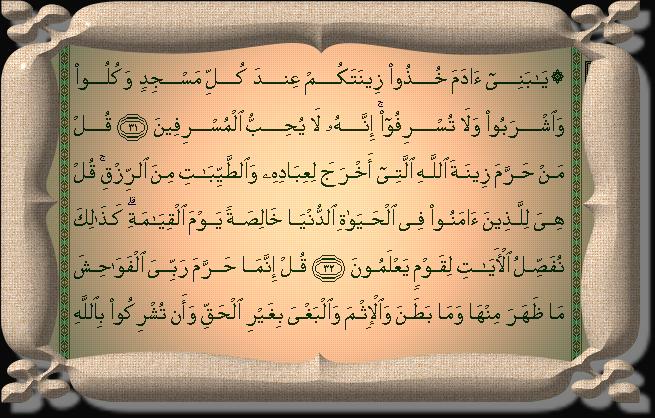 ۞ يَـٰبَنِىٓ ءَادَمَ خُذُوا۟ زِينَتَكُمْ عِندَ كُلِّ مَسْجِدٍ وَكُلُوا۟
وَٱشْرَبُوا۟ وَلَا تُسْرِفُوٓا۟ ۚ إِنَّهُۥ لَا يُحِبُّ ٱلْمُسْرِفِينَ ٣١ قُلْ
مَنْ حَرَّمَ زِينَةَ ٱللَّهِ ٱلَّتِىٓ أَخْرَجَ لِعِبَادِهِۦ وَٱلطَّيِّبَـٰتِ مِنَ ٱلرِّزْقِ ۚ قُلْ
هِىَ لِلَّذِينَ ءَامَنُوا۟ فِى ٱلْحَيَوٰةِ ٱلدُّنْيَا خَالِصَةً يَوْمَ ٱلْقِيَـٰمَةِ ۗ كَذَٰلِكَ
نُفَصِّلُ ٱلْـَٔايَـٰتِ لِقَوْمٍ يَعْلَمُونَ ٣٢ قُلْ إِنَّمَا حَرَّمَ رَبِّىَ ٱلْفَوَٰحِشَ
مَا ظَهَرَ مِنْهَا وَمَا بَطَنَ وَٱلْإِثْمَ وَٱلْبَغْىَ بِغَيْرِ ٱلْحَقِّ وَأَن تُشْرِكُوا۟ بِٱللَّهِ